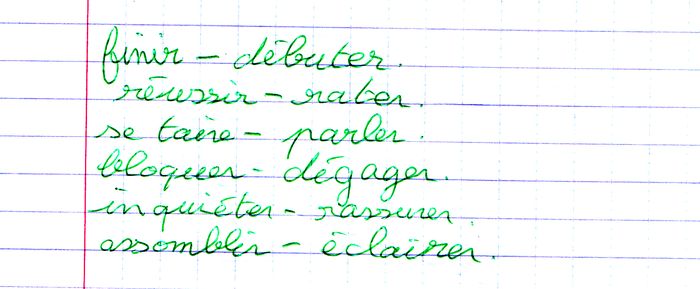 finir – débuter.
réussir – rater.
se taire – parler.
bloquer - dégager.
inquiéter - rassurer.
assomblir – éclairer.